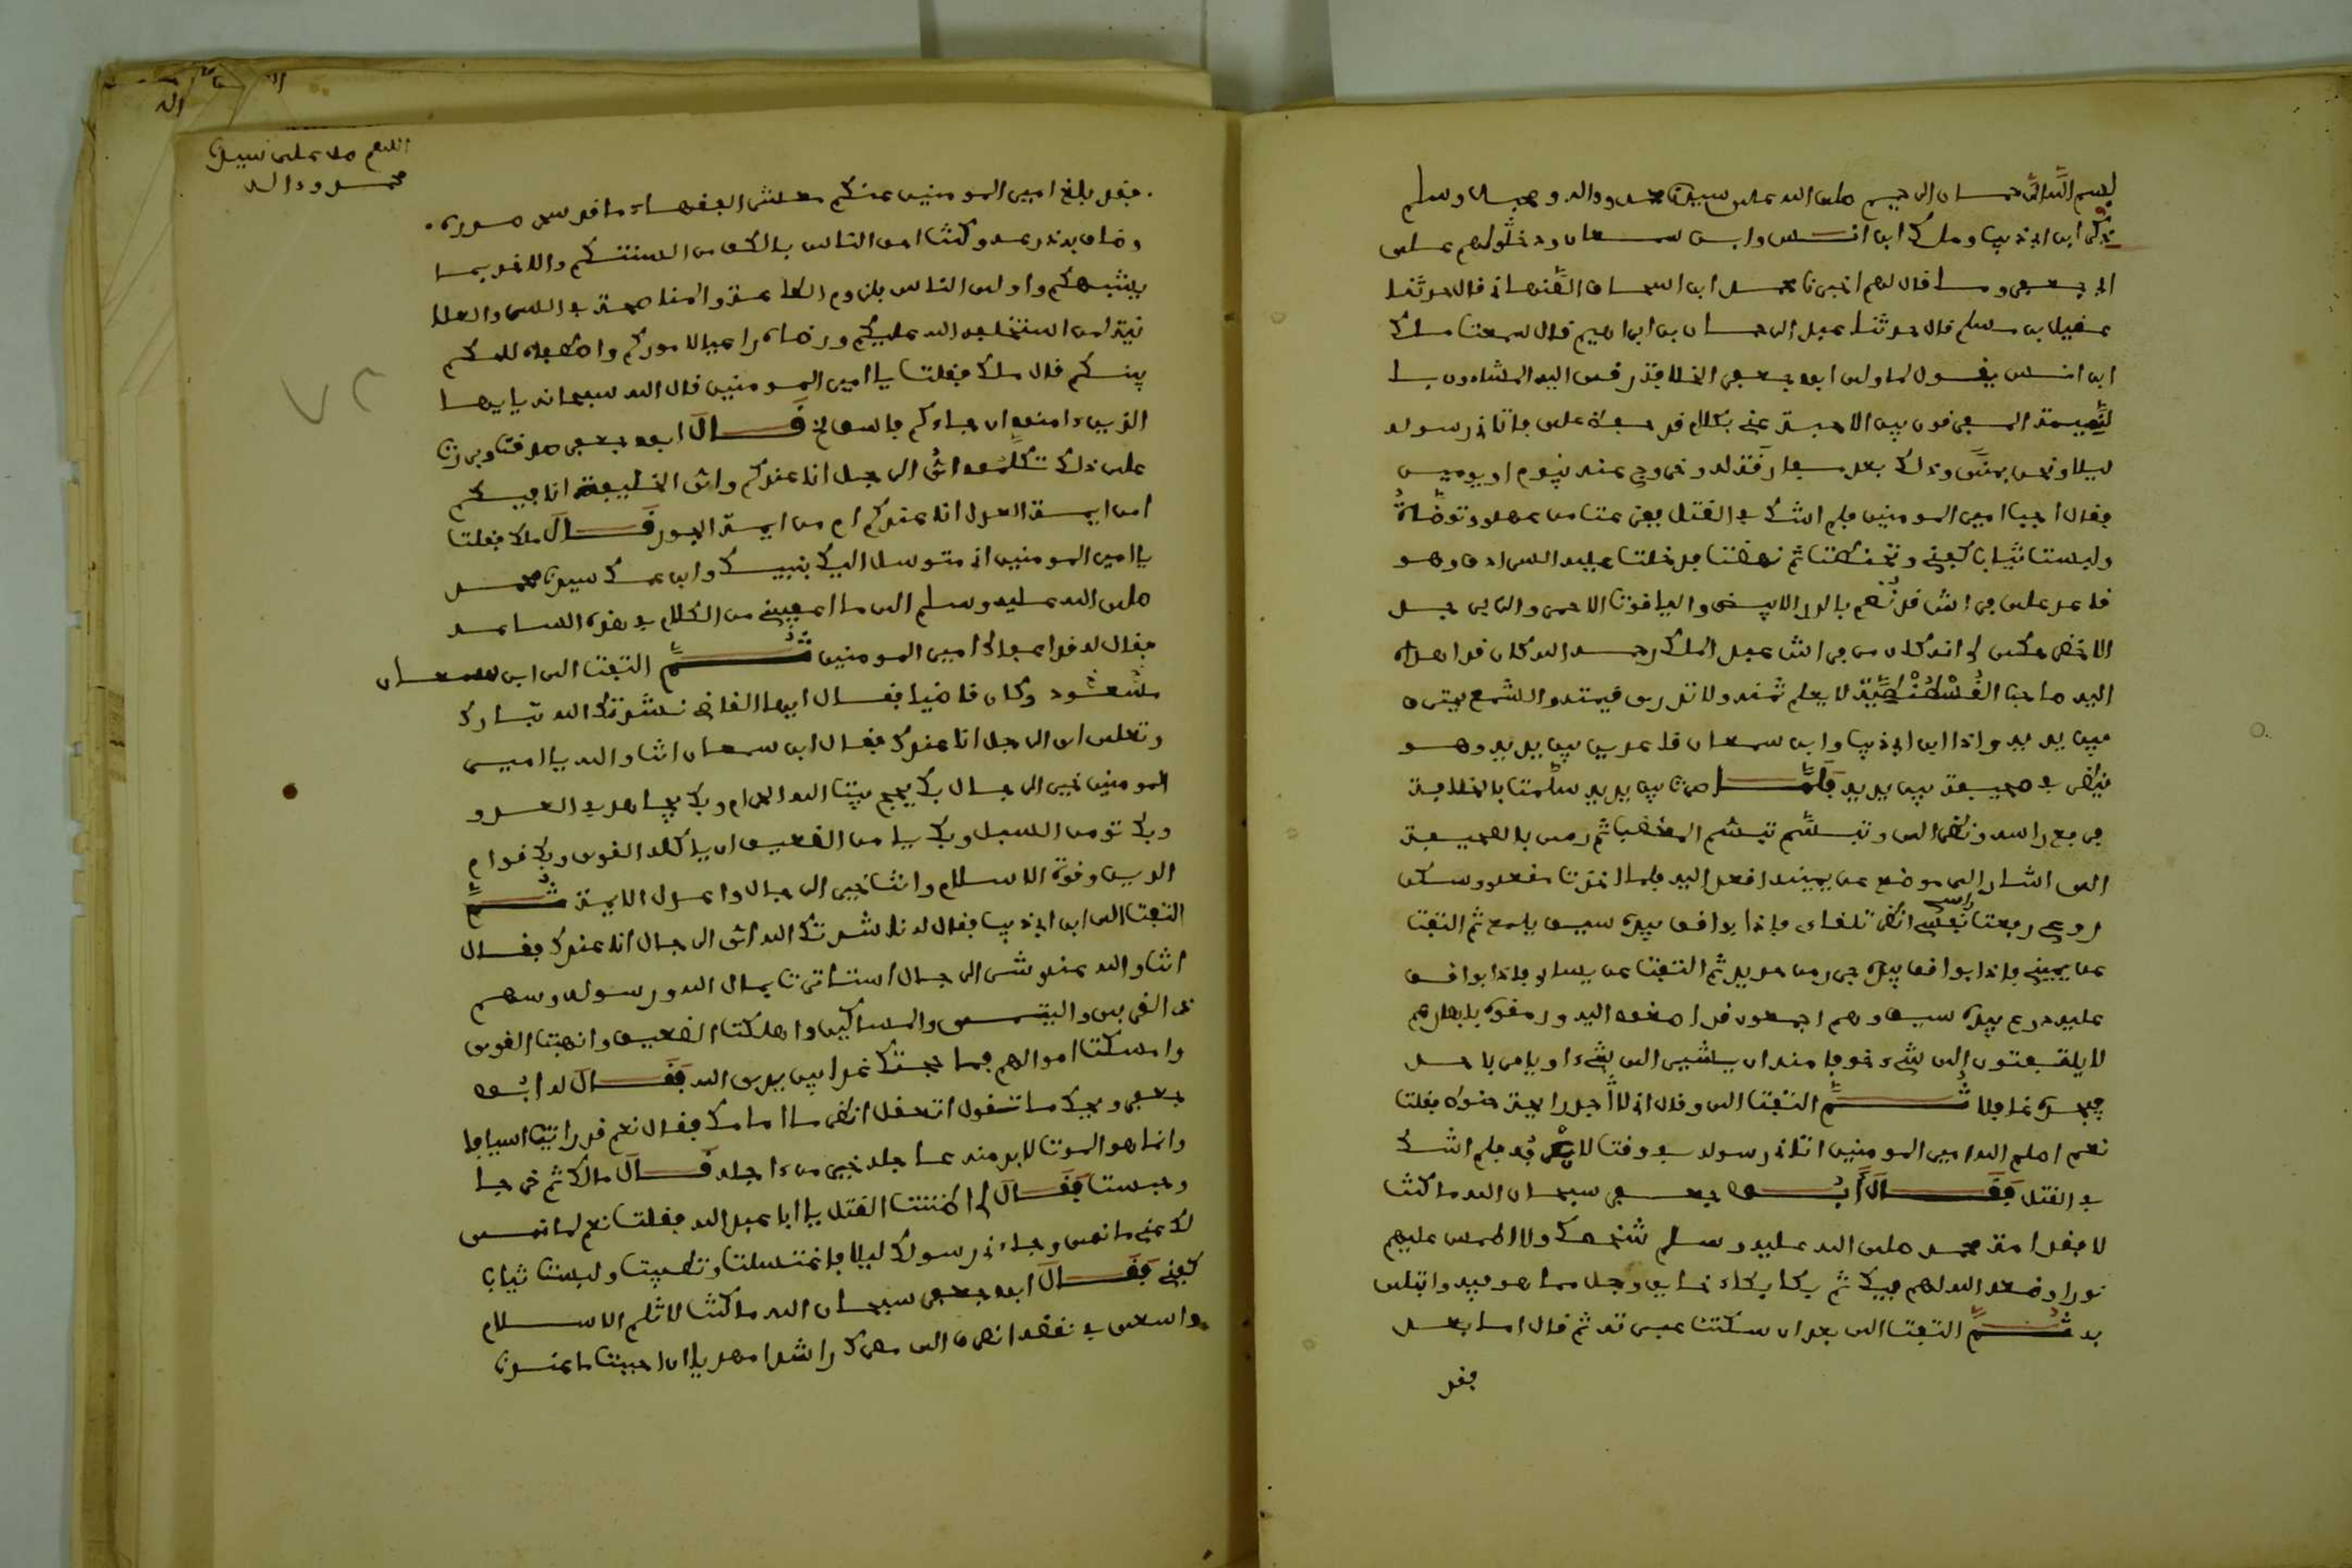 بسم الله الرحمان الرحيم صلى الله على سيدنا محمد وءاله وصحبه وسلم
ذكر ابن ابي ذيب ومالك ابن انس وابن سمعان ودخولهم على
ابي جعفر وما قال لهم اخبرنا محمد ابن اسحاق قال حدثنا
عقيل بن مسلم قال حدثنا عبد الرحمان بن ابراهيم قال سمعت مالك
ابن انس يقول لما ولي ابو جعفر الخلافة رقى اليه المشاءون با
لنميمة المفرقون بين الاحبة عني بكلام قد حفظه علي فاتاني رسوله
ليلا ونحن بمنى وذلك بعد مفارقته له وخروجي عنه بيوم او يومين
فقال اجب امير المومنين فلم اشك في القتل ففرغت من عهدي وتوضات
ولبست ثياب كفني وتحنطت ثم نهضت فدخلت عليه السرادق وهو
قاعد على فراش قد نظم بالدر الابيض والياقوت الاحمر والزبرجد
الاخضر فذكر لي انه كان من فراش عبد الملك رحمه الله كان قد اهداه
اليه صاحب القسطنطينية لا يعلم ثمنه ولا تدرى قيمته والشمع يحترق
بين يديه واذا ابن ابي ذيب وابن سمعان قاعدين بين يديه وهو
ينظر في صحيفة بين يديه فلما صرت بين يديه سلمت بالخلافة
فرفع راسه ونظر الي وتبسم تبسم المغضب ثم رمى بالصحيفة
الي اشار الى موضع عن يمينه اقعد اليه فلما اخذت مقعدي وسكن
روعي رفعت راسي انظر تلقاءي فاذا بواقف بيده سيف يلمع ثم التفت
عن يميني فاذا بواقف بيده جرز من حديد ثم التفت عن يساري فاذا بواقف
عليه درع بيده سيف وهم اجمعون قد اصغوا اليه ورمقوه بابصارهم
لا يلتفتون الى شيء خوفا منه ان يشير الى شيء او يامر باحد
فيجده غافلا ثم التفت الي وقال اني لا اجد رايحة حنوط فقلت
نعم اصلح الله امير المومنين اتاني رسوله في وقت فلم اشك
في القتل فقال ابو جعفر سبحان الله ما كنت
لافقد امة محمد صلى الله عليه وسلم شخصك ولا اطمس عليهم
نورا وضعه الله لهم فيك ثم بكا بكاء خايف وجل مما هو فيه وابتلي
به ثم التفت الي بعد ان سكنت عبرته ثم قال اما بعد
فقد
اللهم صل على سيدنا
محمد وءاله
فقد بلغ امير المومنين عنكم معشر الفقهاء ما قد صدره
وضاق به ذرعه وكنتم احق الناس بالكف من السنتكم والاخذ بما
يشبهكم واولى الناس بلزوم الطاعة والمناصحة في السر والعلا
نية لمن استخلفه الله عليكم ورضاه راعيا لاموركم
قال مالك فقلت يا امير المومنين قال الله سبحانه يايها
الذين ءامنوا ان جاءكم فاسق قال ابو جعفر صدقت وبررت
على ذلك اي الرجل انا عندكم واي الخليفة انا فيكم
امن ايمة العدل انا عندكم ام من ايمة الجور قال مالك فقلت
يا امير المومنين اني متوسل اليك بنبيك وابن عمك سيدنا محمد
صلى الله عليه وسلم الى ما اعفيتني من الكلام في هذه الساعة
فقال له قد اعفاك امير المومنين ثم التفت الى ابن سمعان
وكان قاضيا فقال ايها القاضي نشدتك الله تبارك
وتعلى اي الرجل انا عندك فقال ابن سمعان انت والله يا امير
المومنين خير الرجال بك يحج بيت الله الحرام وبك يجاهد في العدو
وبك تومن السبل وبك يامن الضعيف ان ياكله القوي وبك قوام
الدين وقوة الاسلام وانت خير الرجال واعدل الايمة ثم
التفت الى ابن ابي ذيب فقال له ناشدتك الله اي الرجال انا عندك فقال
انت والله عندي شر الرجال استاثرت بمال الله ورسوله وسهم
ذي القربى واليتمى والمساكين واهلكت الضعيف واتعبت القوي
وامسكت اموالهم فما حجتك غدا بين يدي الله فقال له ابو
جعفر ويحك ما تقول اتعقل انظر ما امامك فقال نعم قد رايت اسيافا
وانما هو الموت لا بد منه عاجله خير من ءاجله قال مالك ثم خرجا
وجلست فقال لي اظننت القتل يا ابا عبد الله فقلت نعم لما نمى
لك عني ما نمى وجاءني رسولك ليلا فاغتسلت وتطيبت ولبست ثياب
كفني فقال ابو جعفر سبحان الله ما كنت لاثلم الاسلام
واسعى في نقضه انصرف الى مصرك راشدا مهديا ان احببت ما عندنا